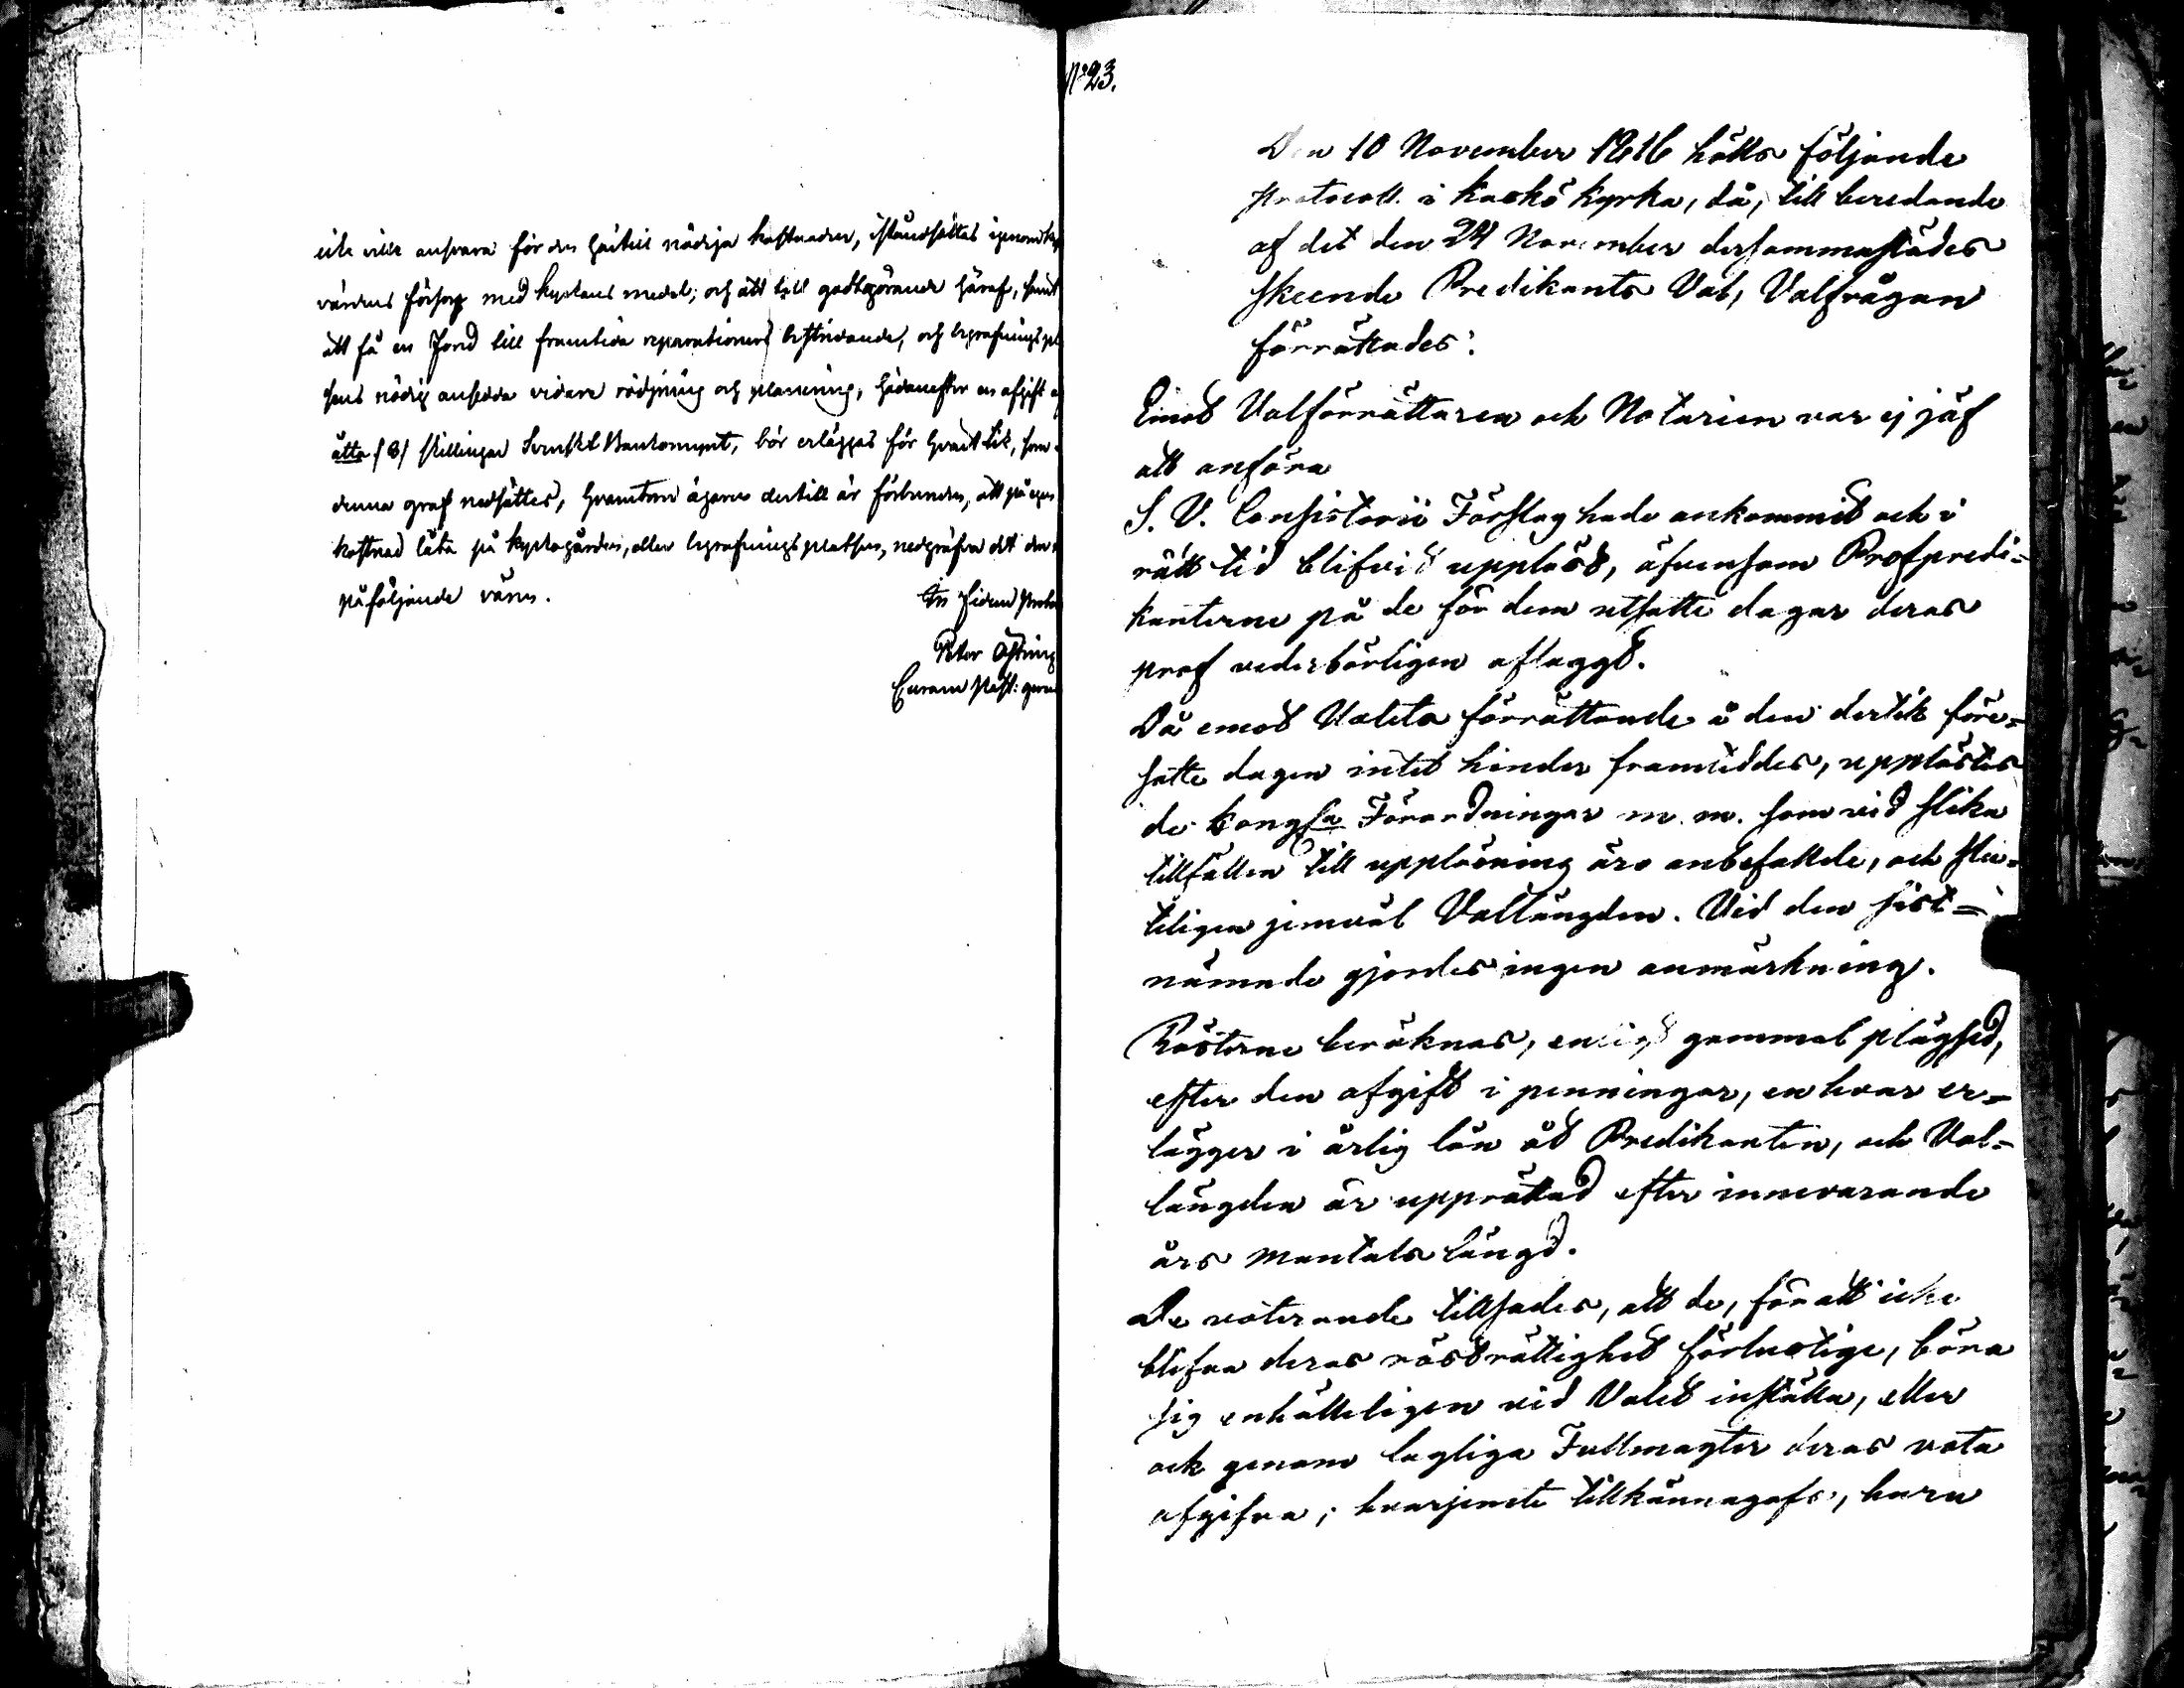 icke ville ansvara för den härtill nödiga kostnaden, iståndsättas igenom
värdens försorg med kyrkans medel; och att till godtgörande häraf, samt
att få en fond till framtida reparationers bestridande, och begrafnings
sens nödig ansedda vidare rödjning och planering, hädanefter en afgift
åtta (8) skillingar Svenskt Bankomynt, bör erläggas för hvart lik, som
denna graf nedsättes, hvarutom ägaren dertill är förbunden, att på egen
kostnad låta på kyrkogården, eller begrafningsplatsen, nedgräfva det den
påföljande våren.
In fidem
Peter
Curam Past: gerens
N:o 23.
Den 10 November 1816 hölts följande
protocoll i Kaskö kyrka, då, till beredande
af det den 24 November dersammastädes
skeende Predikants Val, Valfrågan
förrättades:
Emot Valförrättaren och Notarien var ej jäf
att anföra
S. V. Consistorii Förslag hade ankommit och i
rätt tid blifvit uppläst, äfvensom Profpredi=
kanterne på de för dem utsatte dagar deras
prof vederbörligen aflaggt.
Då emot Valets förrättande å den dertill före=
satte dagen intet hinder framteddes, upplästes
de Kongla Förordningar m. m. som vid slika
tillfällen till uppläsning äro anbefallde, och slu=
teligen jemväl Vallängden. Vid den sist=
nämnde gjordes ingen anmärkning.
Rösterne beräknas, enligt gammal plägsed,
efter den afgift i penningar, en hvar er=
lägger i årlig lön åt Predikanten, och Val=
längden är upprättad efter innevarande
års mantals längd.
De voterande tillsades, att de, för att icke
blifva deras röst rättighet förlustige, böra
sig enhälleligen vid Valet inställa, eller
ock genom lagliga Fullmagter deras vota
afgifva; hvarjemte tillkännagafs, huru